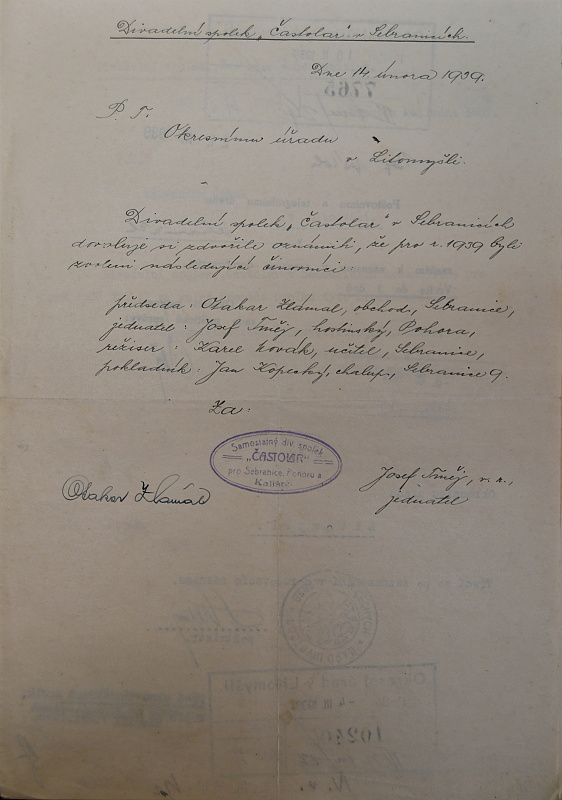 Divadelní spolek „Častolar" v Sebranicích.
Dne 14. února 1939.
P. T.
Okresnímu úřadu
v Litomyšli.
Divadelní spolek „Častolar" v Sebranicích
dovoluje si zdvořile oznámiti, že pro r. 1939 byli
zvoleni následující činovníci:
předseda: Otakar Zlámal, obchod., Sebranice,
jednatel: Josef Tměj, hostinský, Pohora,
režiser: Karel Novák, učitel, Sebranice,
pokladník: Jan Kopecký, chalup., Sebranice 9.
Za:
Samostatný div. spolek
„ČASTOLAR"
pro Sebranice, Pohoru a
Kaliště
Otakar Zlámal
Josef Tměj, v. r.,
jednatel